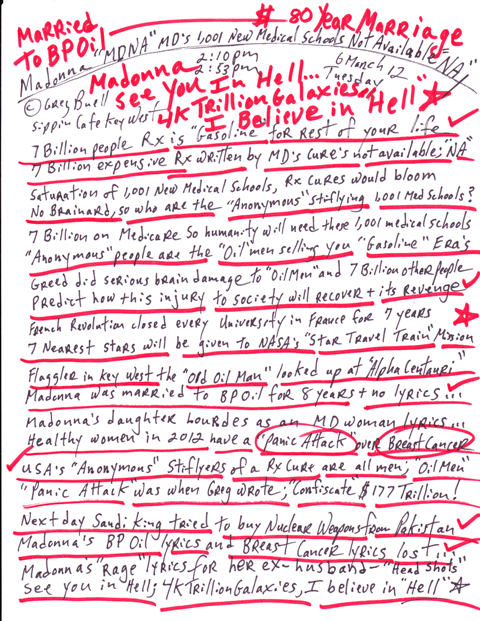 Married
To BP Oil
$ 80 Year Marriage
Madonna "MDNA" MD's 1,001 New Medical Schools Not Available = NA!
2:10pm
2:53pm
6 March 12
Tuesday
Madonna
See you In Hell...
4K Trillion Galaxies,
I Believe in "Hell"
© Greg Buell
Sippin Cafe Key West
7 Billion people Rx is "Gasoline" for rest of your life
7 Billion expensive Rx written by MD's cure's not available; "NA"
Saturation of 1,001 New Medical Schools, Rx cures would bloom
No Brainard, so who are the "Anonymous" stiflying 1,001 Med Schools?
7 Billion on Medicare so humanity will need these 1,001 medical schools
"Anonymous" people are the "Oil" men selling you "Gasoline" Era's
Greed did serious brain damage to "Oil Men" and 7 Billion other people
Predict how this injury to society will recover + its revenge
French Revolution closed every University in France for 7 years
7 Nearest stars will be given to NASA's "Star Travel Train" Mission
Flaggler in key west the "Old Oil Man" looked up at "Alpha Centauri"
Madonna was married to BP Oil for 8 years + no lyrics...
Madonna's daughter Lourdes as an MD woman lyrics...
Healthy women in 2012 have a "Panic Attack" over Breast Cancer
USA's "Anonymous" Stiflyers of a Rx Cure are all men; "Oil Men"
"Panic Attack" was when Greg wrote; "Confiscate" $177 Trillion!
Next day Saudi King tried to buy Nuclear Weapons from Pakistan
Madonna's BP Oil lyrics and Breast Cancer lyrics lost...
Madonna's "Rage" lyrics for her ex-husband - "Head Shots"
See you in Hell; 4K Trillion Galaxies, I believe in "Hell"